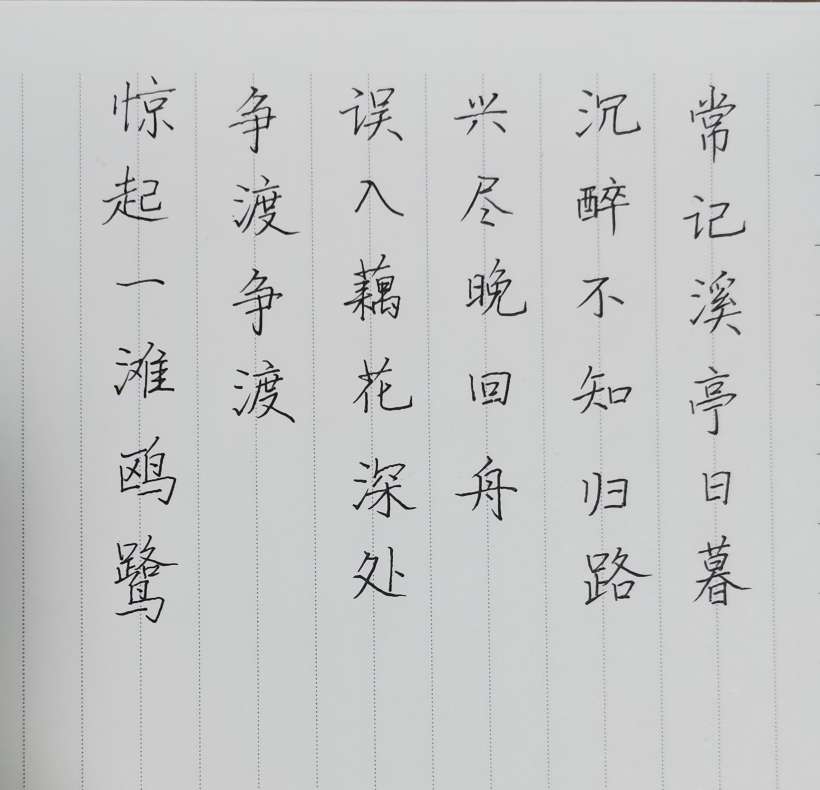 常记溪亭日暮
沉醉不知归路
兴尽晚回舟
误入藕花深处
争渡争渡
惊起一滩鸥鹭